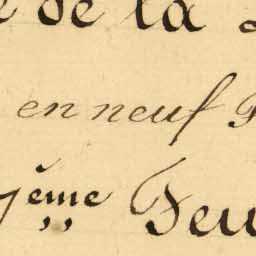 de la
en neuf
ème Feu